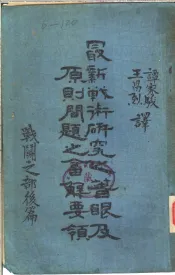 譚家駿
王昌烈 譯
最新戰術研究之著眼及
原則問題之審解要領
戰鬪之部後篇